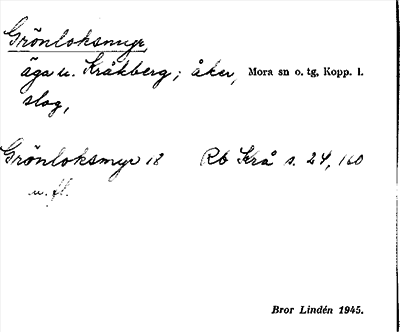 Grönloksmyr,
äga u. Kråkberg; åker, Mora sn o. tg, Kopp. l.
slog,
Grönloksmyr 18 Rb Krå s. 24, 160
u. fl.
Bror Lindén 1945.